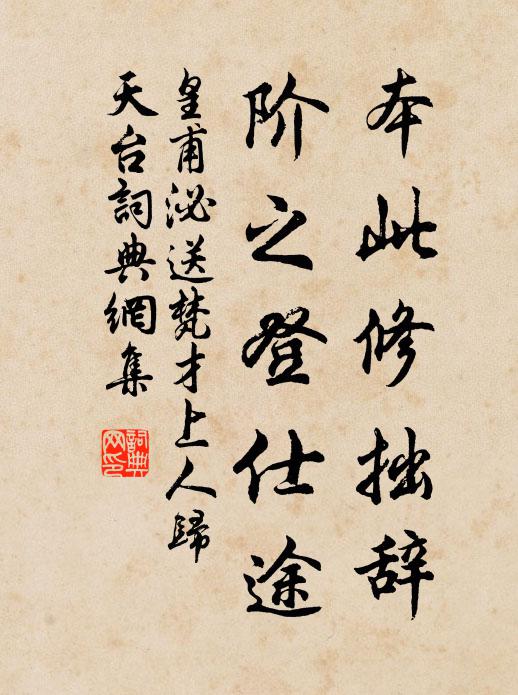 本此修拙辞
阶之登仕途
皇甫泌送梵才上人歸
天台詞典網集
詞典
网印